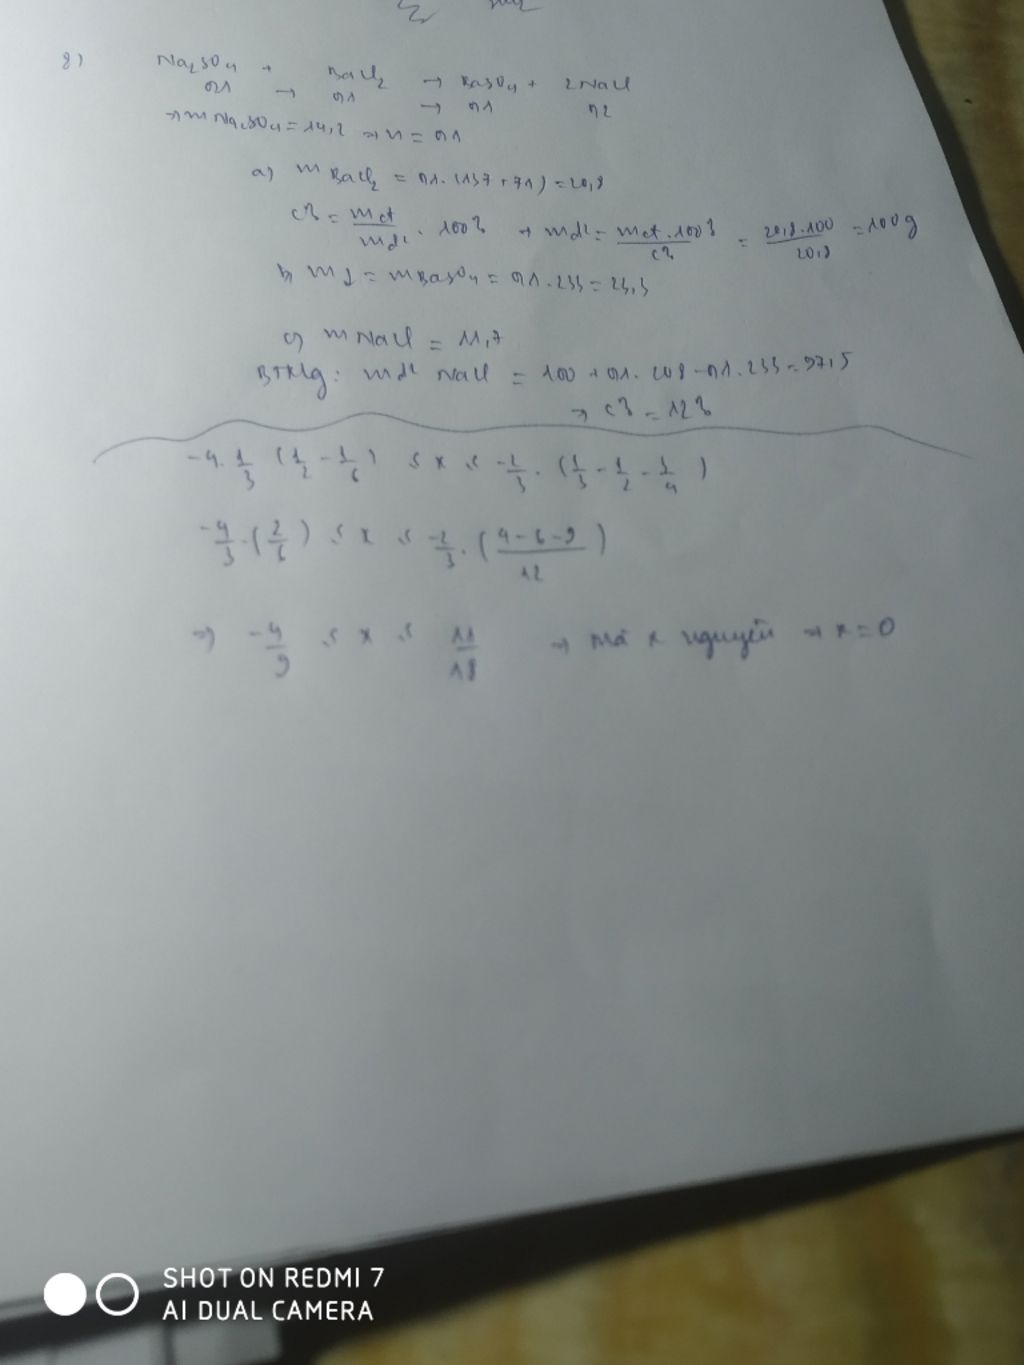 8)
Na2SO4 + BaCl2 → BaSO4 + 2NaCl
0,1 → 0,1 → 0,1 0,2
→ mNa2SO4 = 14,2 → n = 0,1
a) mBaCl2 = 0,1.(137+71) = 20,8
C% = mct/mdd . 100% → mdd = mct.100%/C% = 20,8.100/20,8 = 100g
b) m↓ = mBaSO4 = 0,1.233 = 23,3
c) mNaCl = 11,7
BTKLg: mdd NaCl = 100 + 0,1.208 - 0,1.233 = 97,5
→ C% = 12%
-4.1/3 (1/2 - 1/6) ≤ x ≤ -2/3.(1/3 - 1/2 - 3/4)
-4/3.(2/6) ≤ x ≤ -2/3.(4-6-9/12)
⇒ -4/9 ≤ x ≤ 11/18 → mà x nguyên → x = 0
SHOT ON REDMI 7
AI DUAL CAMERA